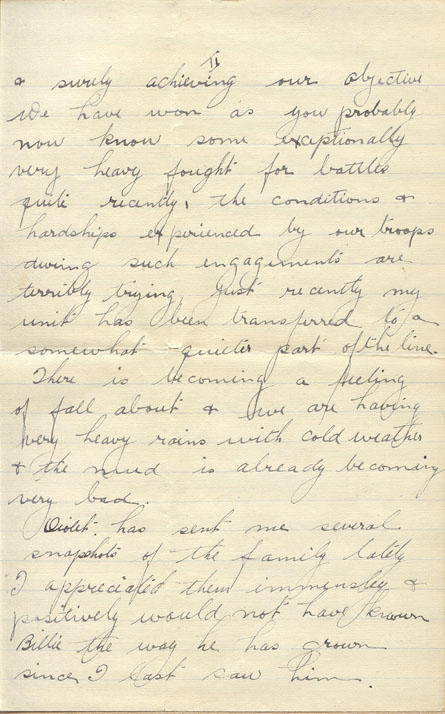 II
& surely achieving our objective
We have won as you probably
now know some exceptionally
very heavy fought for battles
quite recently, the conditions &
hardships experienced by our troops
during such engagements are
terribly trying. Just recently my
unit has been transferred to a
somewhat quieter part of the line.
There is becoming a feeling
of fall about & we are having
very heavy rains with cold weather
& the mud is already becoming
very bad.
Violet has sent me several
snapshots of the family lately
I appreciated them immensley &
positively would not have known
Billie the way he has grown
since I last saw him.